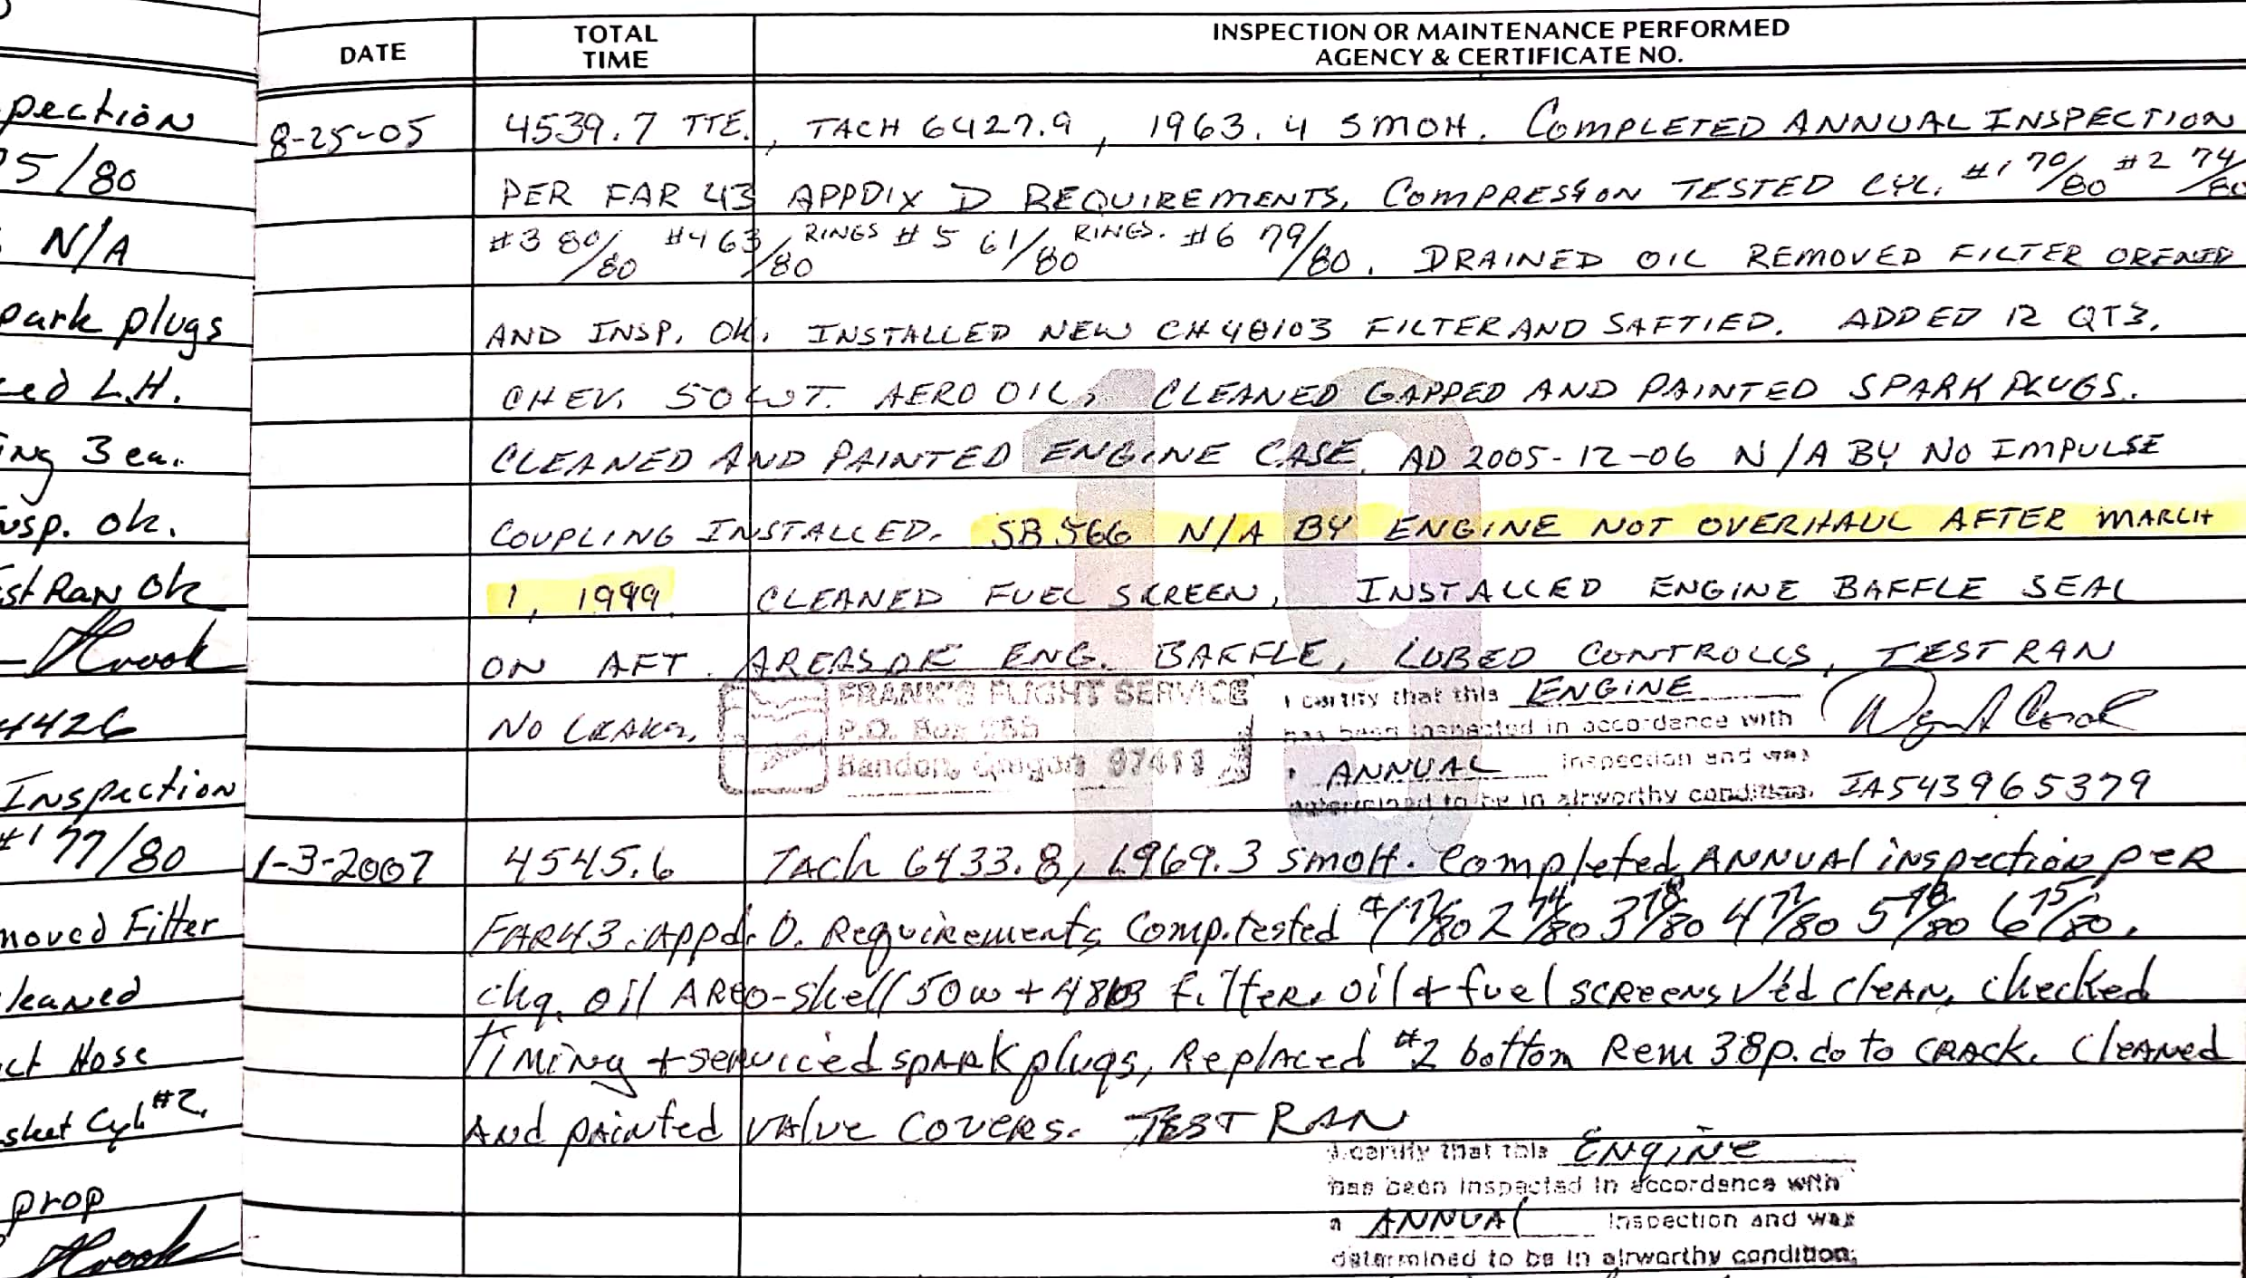 pection
5/80
N/A
park plugs
ced L.H.
ing 3 ea.
nsp. ok.
st Ran ok
4426
Inspection
#1 77/80
moved Filter
leaned
ct Hose
sket Cyl #2.
prop
DATE
TOTAL TIME
INSPECTION OR MAINTENANCE PERFORMED
AGENCY & CERTIFICATE NO.
8-25-05 4539.7 TTE., TACH 6427.9, 1963.4 SMOH. COMPLETED ANNUAL INSPECTION
PER FAR 43 APPDIX D REQUIREMENTS, COMPRESSION TESTED CYL. #1 70/80 #2 74/80
#3 80/80 #4 63/80 RINGS #5 61/80 RINGS. #6 79/80. DRAINED OIL REMOVED FILTER OPENED
AND INSP. OK. INSTALLED NEW CH48103 FILTER AND SAFTIED. ADDED 12 QTS.
CHEV. 50 WT. AERO OIL, CLEANED GAPPED AND PAINTED SPARK PLUGS.
CLEANED AND PAINTED ENGINE CASE. AD 2005-12-06 N/A BY NO IMPULSE
COUPLING INSTALLED. SB 566 N/A BY ENGINE NOT OVERHAUL AFTER MARCH
1, 1999. CLEANED FUEL SCREEN, INSTALLED ENGINE BAFFLE SEAL
ON AFT AREAS OF ENG. BAFFLE, LUBED CONTROLLS, TEST RAN
NO LEAKS.
FRANK'S FLIGHT SERVICE
P.O. Box
Bandon, Oregon 97411
I certify that this ENGINE
has been inspected in accordance with
ANNUAL inspection and was
determined to be in airworthy condition.
IA543965379
19
1-3-2007 4545.6 Tach 6433.8, 1969.3 SMOH. Completed ANNUAL inspection per
FAR43. Appd. D. Requirements Comp. tested 2 74/80 3 78/80 4 77/80 5 78/80 6 75/80.
chg. oil AREO-shell 50w + 48103 filter. oil + fuel screens clean, checked
Timing + serviced spark plugs, Replaced #2 bottom Rem 38p. do to crack. Cleaned
And painted valve covers. TEST RAN
I certify that this Engine
has been inspected in accordance with
a ANNUAL inspection and was
determined to be in airworthy condition.